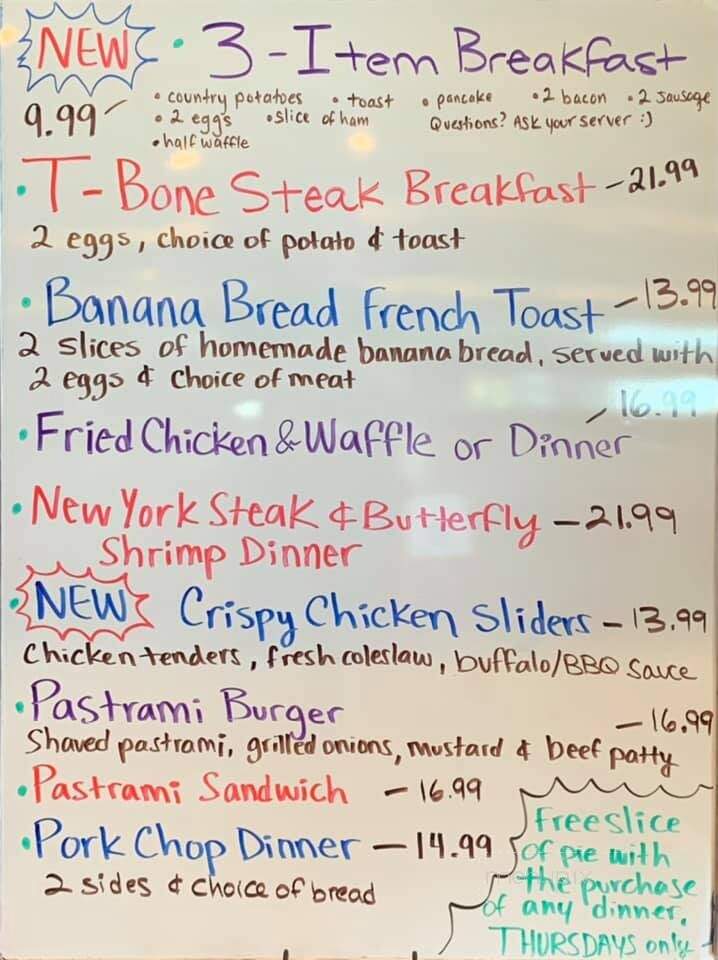 NEW • 3-Item Breakfast
9.99 • country potatoes • toast • pancake • 2 bacon • 2 sausage
• 2 eggs • slice of ham Questions? Ask your server :)
• half waffle
• T-Bone Steak Breakfast - 21.99
2 eggs, choice of potato & toast
• Banana Bread French Toast - 13.99
2 slices of homemade banana bread, served with
2 eggs & choice of meat
- 16.99
• Fried Chicken & Waffle or Dinner
• New York Steak & Butterfly - 21.99
Shrimp Dinner
• NEW Crispy Chicken Sliders - 13.99
Chicken tenders, fresh coleslaw, buffalo/BBQ sauce
• Pastrami Burger - 16.99
Shaved pastrami, grilled onions, mustard & beef patty
• Pastrami Sandwich - 16.99
• Pork Chop Dinner - 14.99
2 sides & choice of bread
Free slice
of pie with
the purchase
of any dinner.
THURSDAYS only